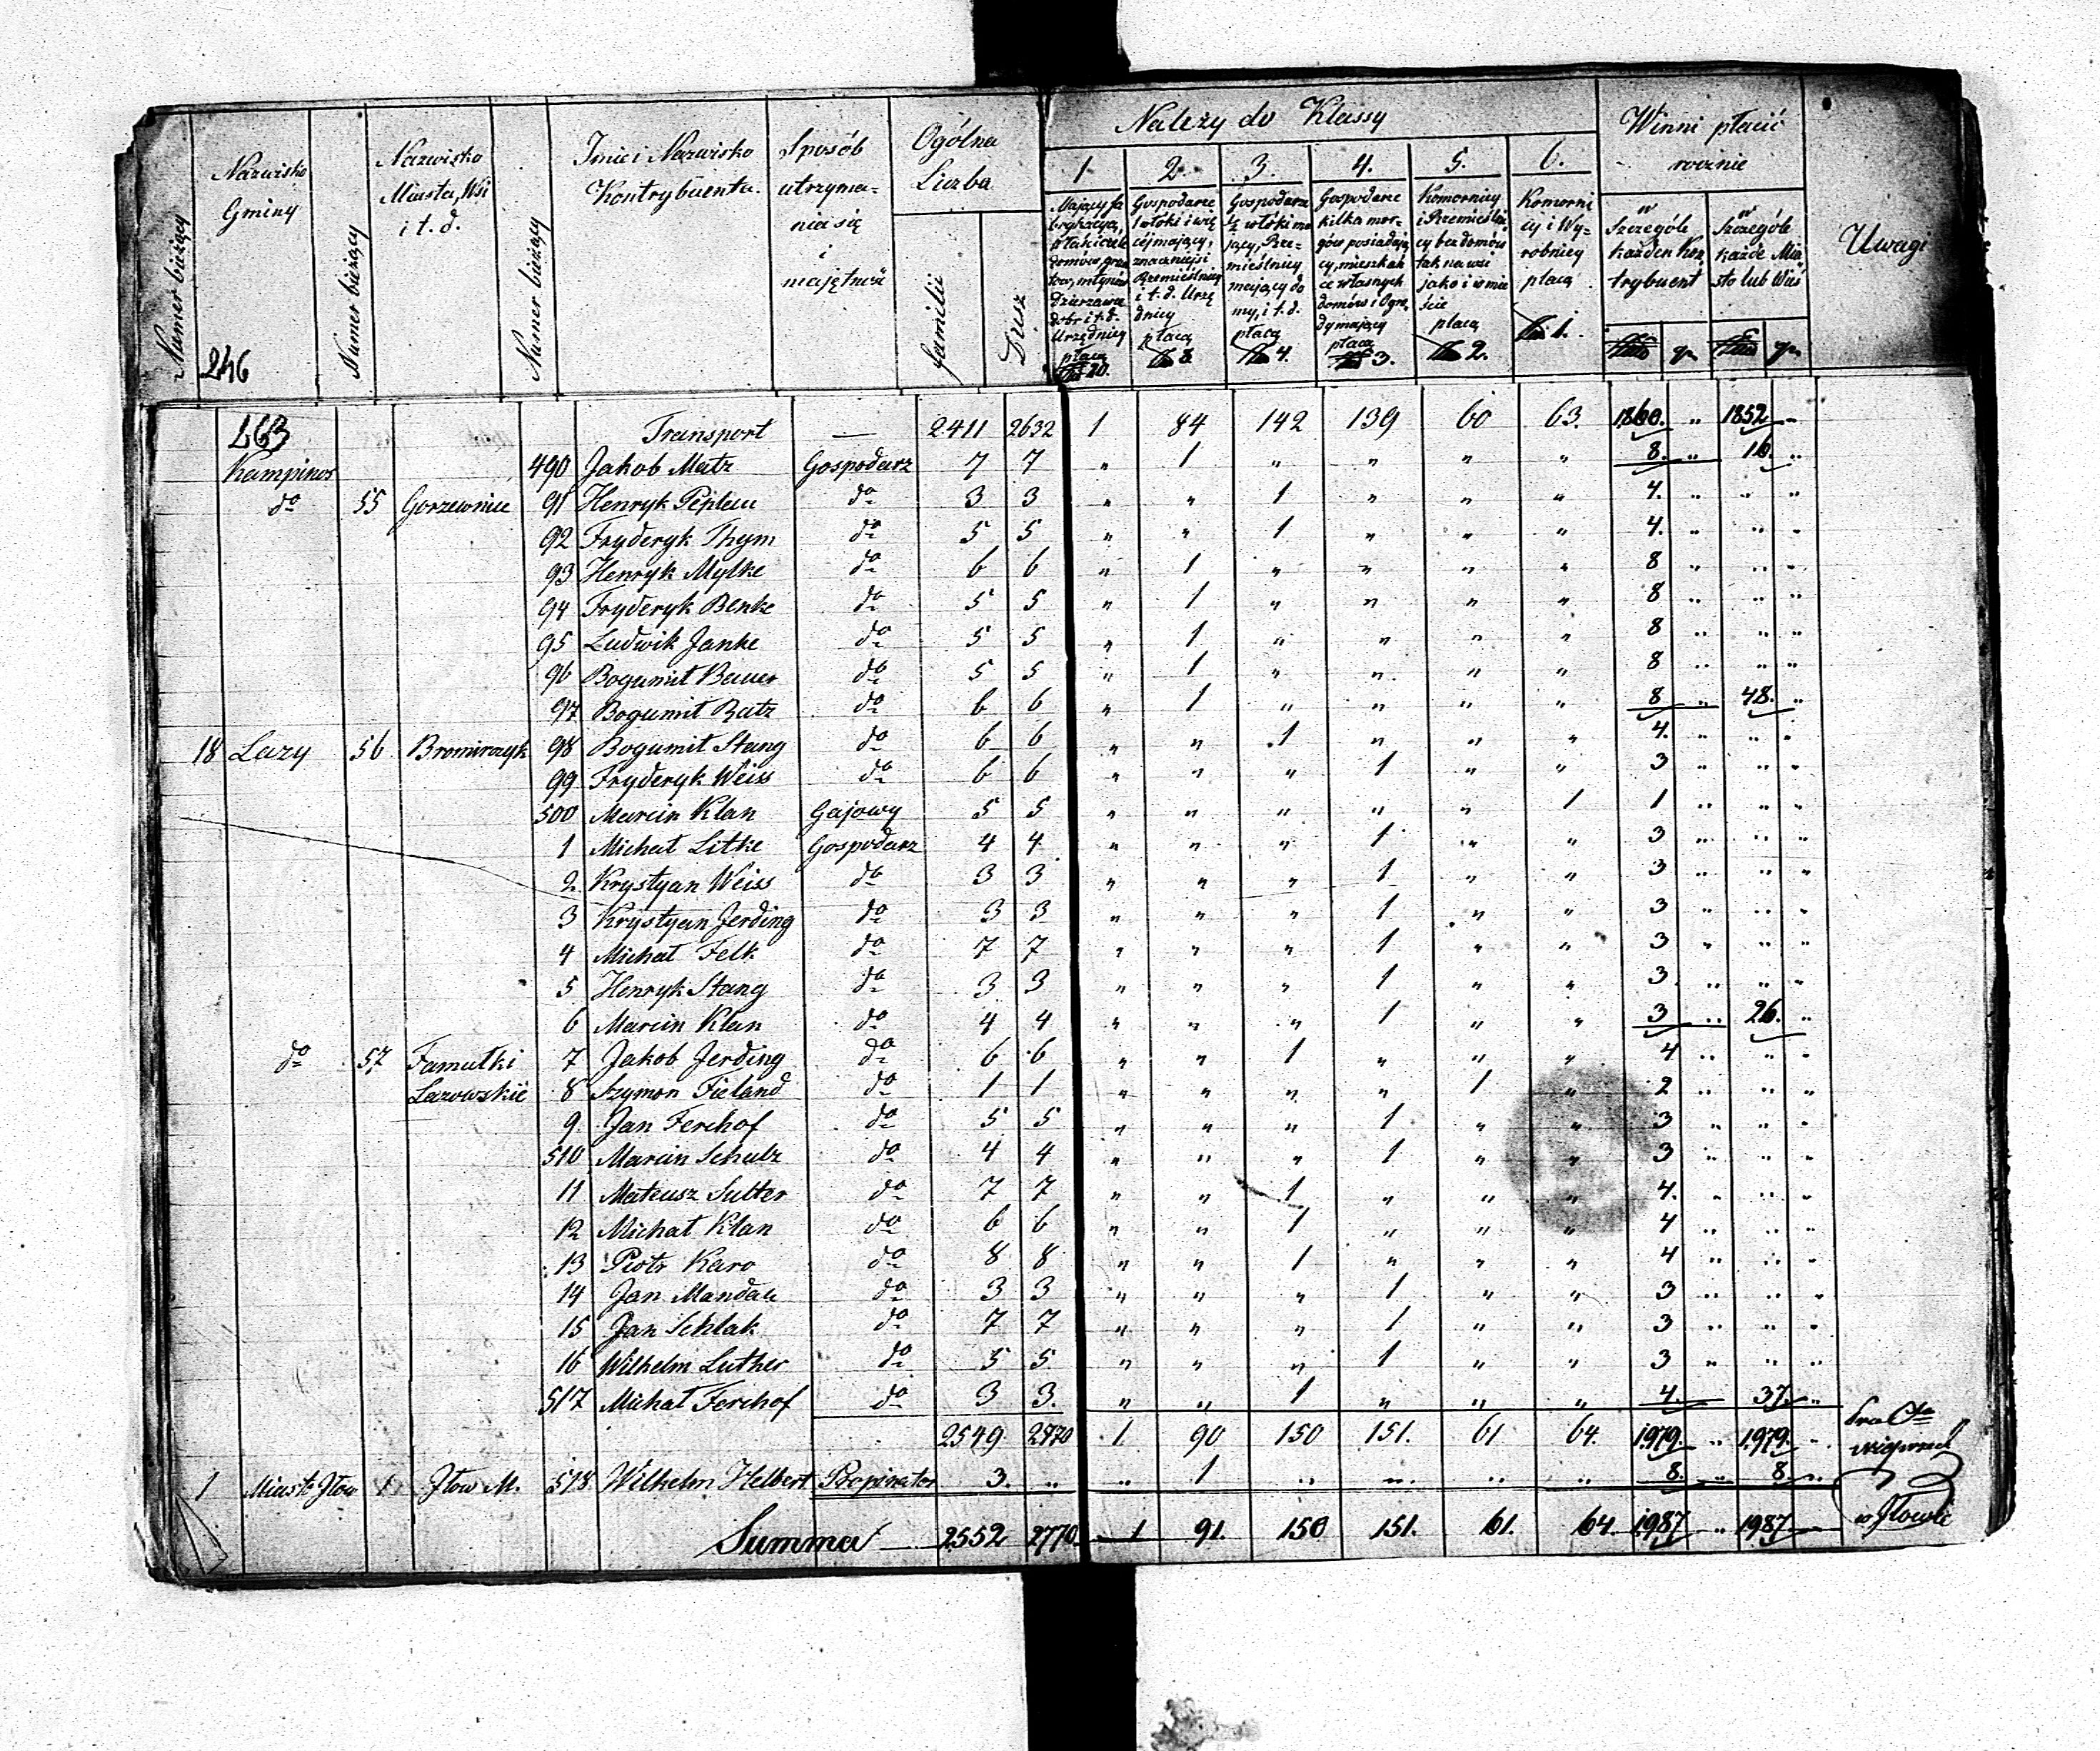 Numer bieżący
Nazwisko Gminy
Numer bieżący
Nazwisko Miasta, Wsi i t. d.
Numer bieżący
Imie i Nazwisko Kontrybuenta.
Sposób utrzymania się i majętność
Ogólna Liczba
familii
Dusz
Należy do Klassy
1. 2. 3. 4. 5. 6.
Gospodarze 1 włóki i więcéj mający, znaczniejsi Rzemieślnicy i t. d. Urzędnicy płacą 8.
Gospodarze ½ włóki mający, Rzemieślnicy mający domy, i t. d. płacą 4.
Gospodarze kilka morgów posiadający, mieszkańce własnych domów i Ogrody mający płacą 3.
Komornicy i Rzemieślnicy bez domów tak na wsi jako i w mieście płacą 2.
Komornicy i Wyrobnicy płacą 1.
Winni płacić rocznie
w Szczególe każden Kontrybuent
w Szczególe każde Miasto lub Wieś
Uwagi
246
463 Transport — 2411 2632 1 84 142 139 60 63. 1860. " 1852 "
Kampinos 490 Jakob Matz Gospodarz 7 7 " 1 " " " " 8. " 16. "
do 55 Gorzewnice 91 Henryk Peplau do 3 3 " " 1 " " " 4. " " "
92 Fryderyk Thym do 5 5 " " 1 " " " 4. " " "
93 Henryk Mylke do 6 6 " 1 " " " " 8 " " "
94 Fryderyk Benke do 5 5 " 1 " " " " 8 " " "
95 Ludwik Janke do 5 5 " 1 " " " " 8 " " "
96 Bogumił Bauer do 5 5 " 1 " " " " 8 " " "
97 Bogumił Ratz do 6 6 " 1 " " " " 8 " 48. "
18 Lazy 56 Bromirczyk 98 Bogumił Stang do 6 6 " " 1 " " " 4. " " "
99 Fryderyk Weiss do 6 6 " " " 1 " " 3 " " "
500 Marcin Klan Gajowy 5 5 " " " " " 1 1 " " "
1 Michał Litke Gospodarz 4 4 " " " 1 " " 3 " " "
2 Krystyan Weiss do 3 3 " " " 1 " " 3 " " "
3 Krystyan Jerding do 3 3 " " " 1 " " 3 " " "
4 Michał Felk do 7 7 " " " 1 " " 3 " " "
5 Henryk Stang do 3 3 " " " 1 " " 3 " " "
6 Marcin Klan do 4 4 " " " 1 " " 3 " 26. "
do 57 Famułki 7 Jakob Jerding do 6 6 " " 1 " " " 4 " " "
Lazowskie 8 Szymon Fieland do 1 1 " " " " 1 " 2 " " "
9 Jan Ferchof do 5 5 " " " 1 " " 3 " " "
510 Marcin Schulz do 4 4 " " " 1 " " 3 " " "
11 Mateusz Sutter do 7 7 " " 1 " " " 4. " " "
12 Michał Klan do 6 6 " " 1 " " " 4 " " "
13 Piotr Karo do 8 8 " " 1 " " " 4 " " "
14 Jan Mandau do 3 3 " " " 1 " " 3 " " "
15 Jan Schlak do 7 7 " " " 1 " " 3 " " "
16 Wilhelm Luther do 5 5 " " " 1 " " 3 " " "
517 Michał Ferchof do 3 3. " " 1 " " " 4. " 37. "
2549 2770 1 90 150 151. 61 64. 1979. " 1979. "
1 Miasto Jłow 1 Jłow M. 518 Wilhelm Helbert Propinator 3. " " 1 " " " " 8. " 8. "
Summa — 2552 2770 1 91. 150 151. 61. 64. 1987 " 1987
w Jłowie